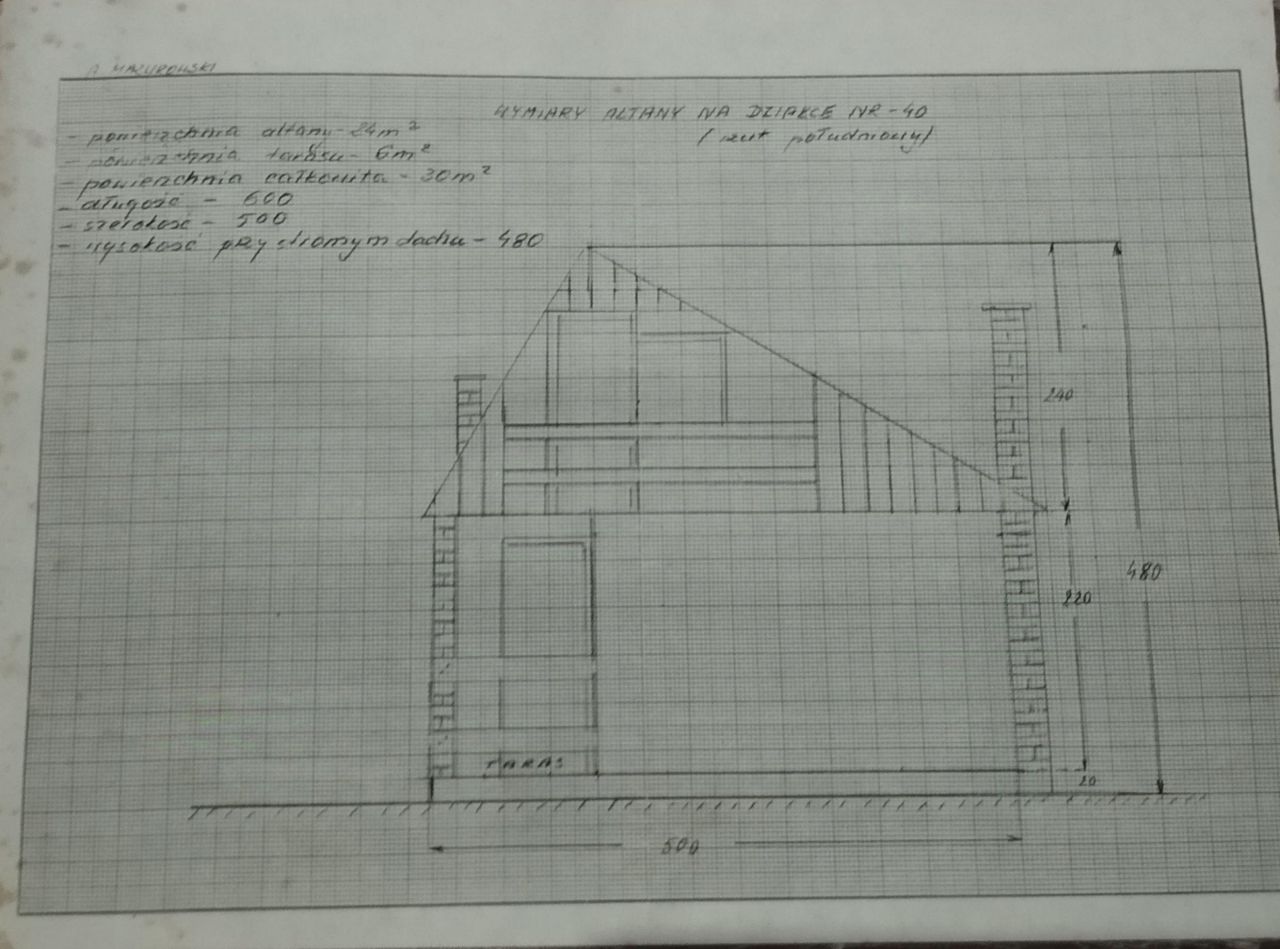 A. MAZUROWSKI
WYMIARY ALTANY NA DZIAŁCE NR-40
(rzut południowy)
- powierzchnia altany - 24m²
- powierzchnia tarasu - 6m²
- powierzchnia całkowita - 30m²
- długość - 600
- szerokość - 500
- wysokość przy stromym dachu - 480
240
480
220
TARAS
20
500